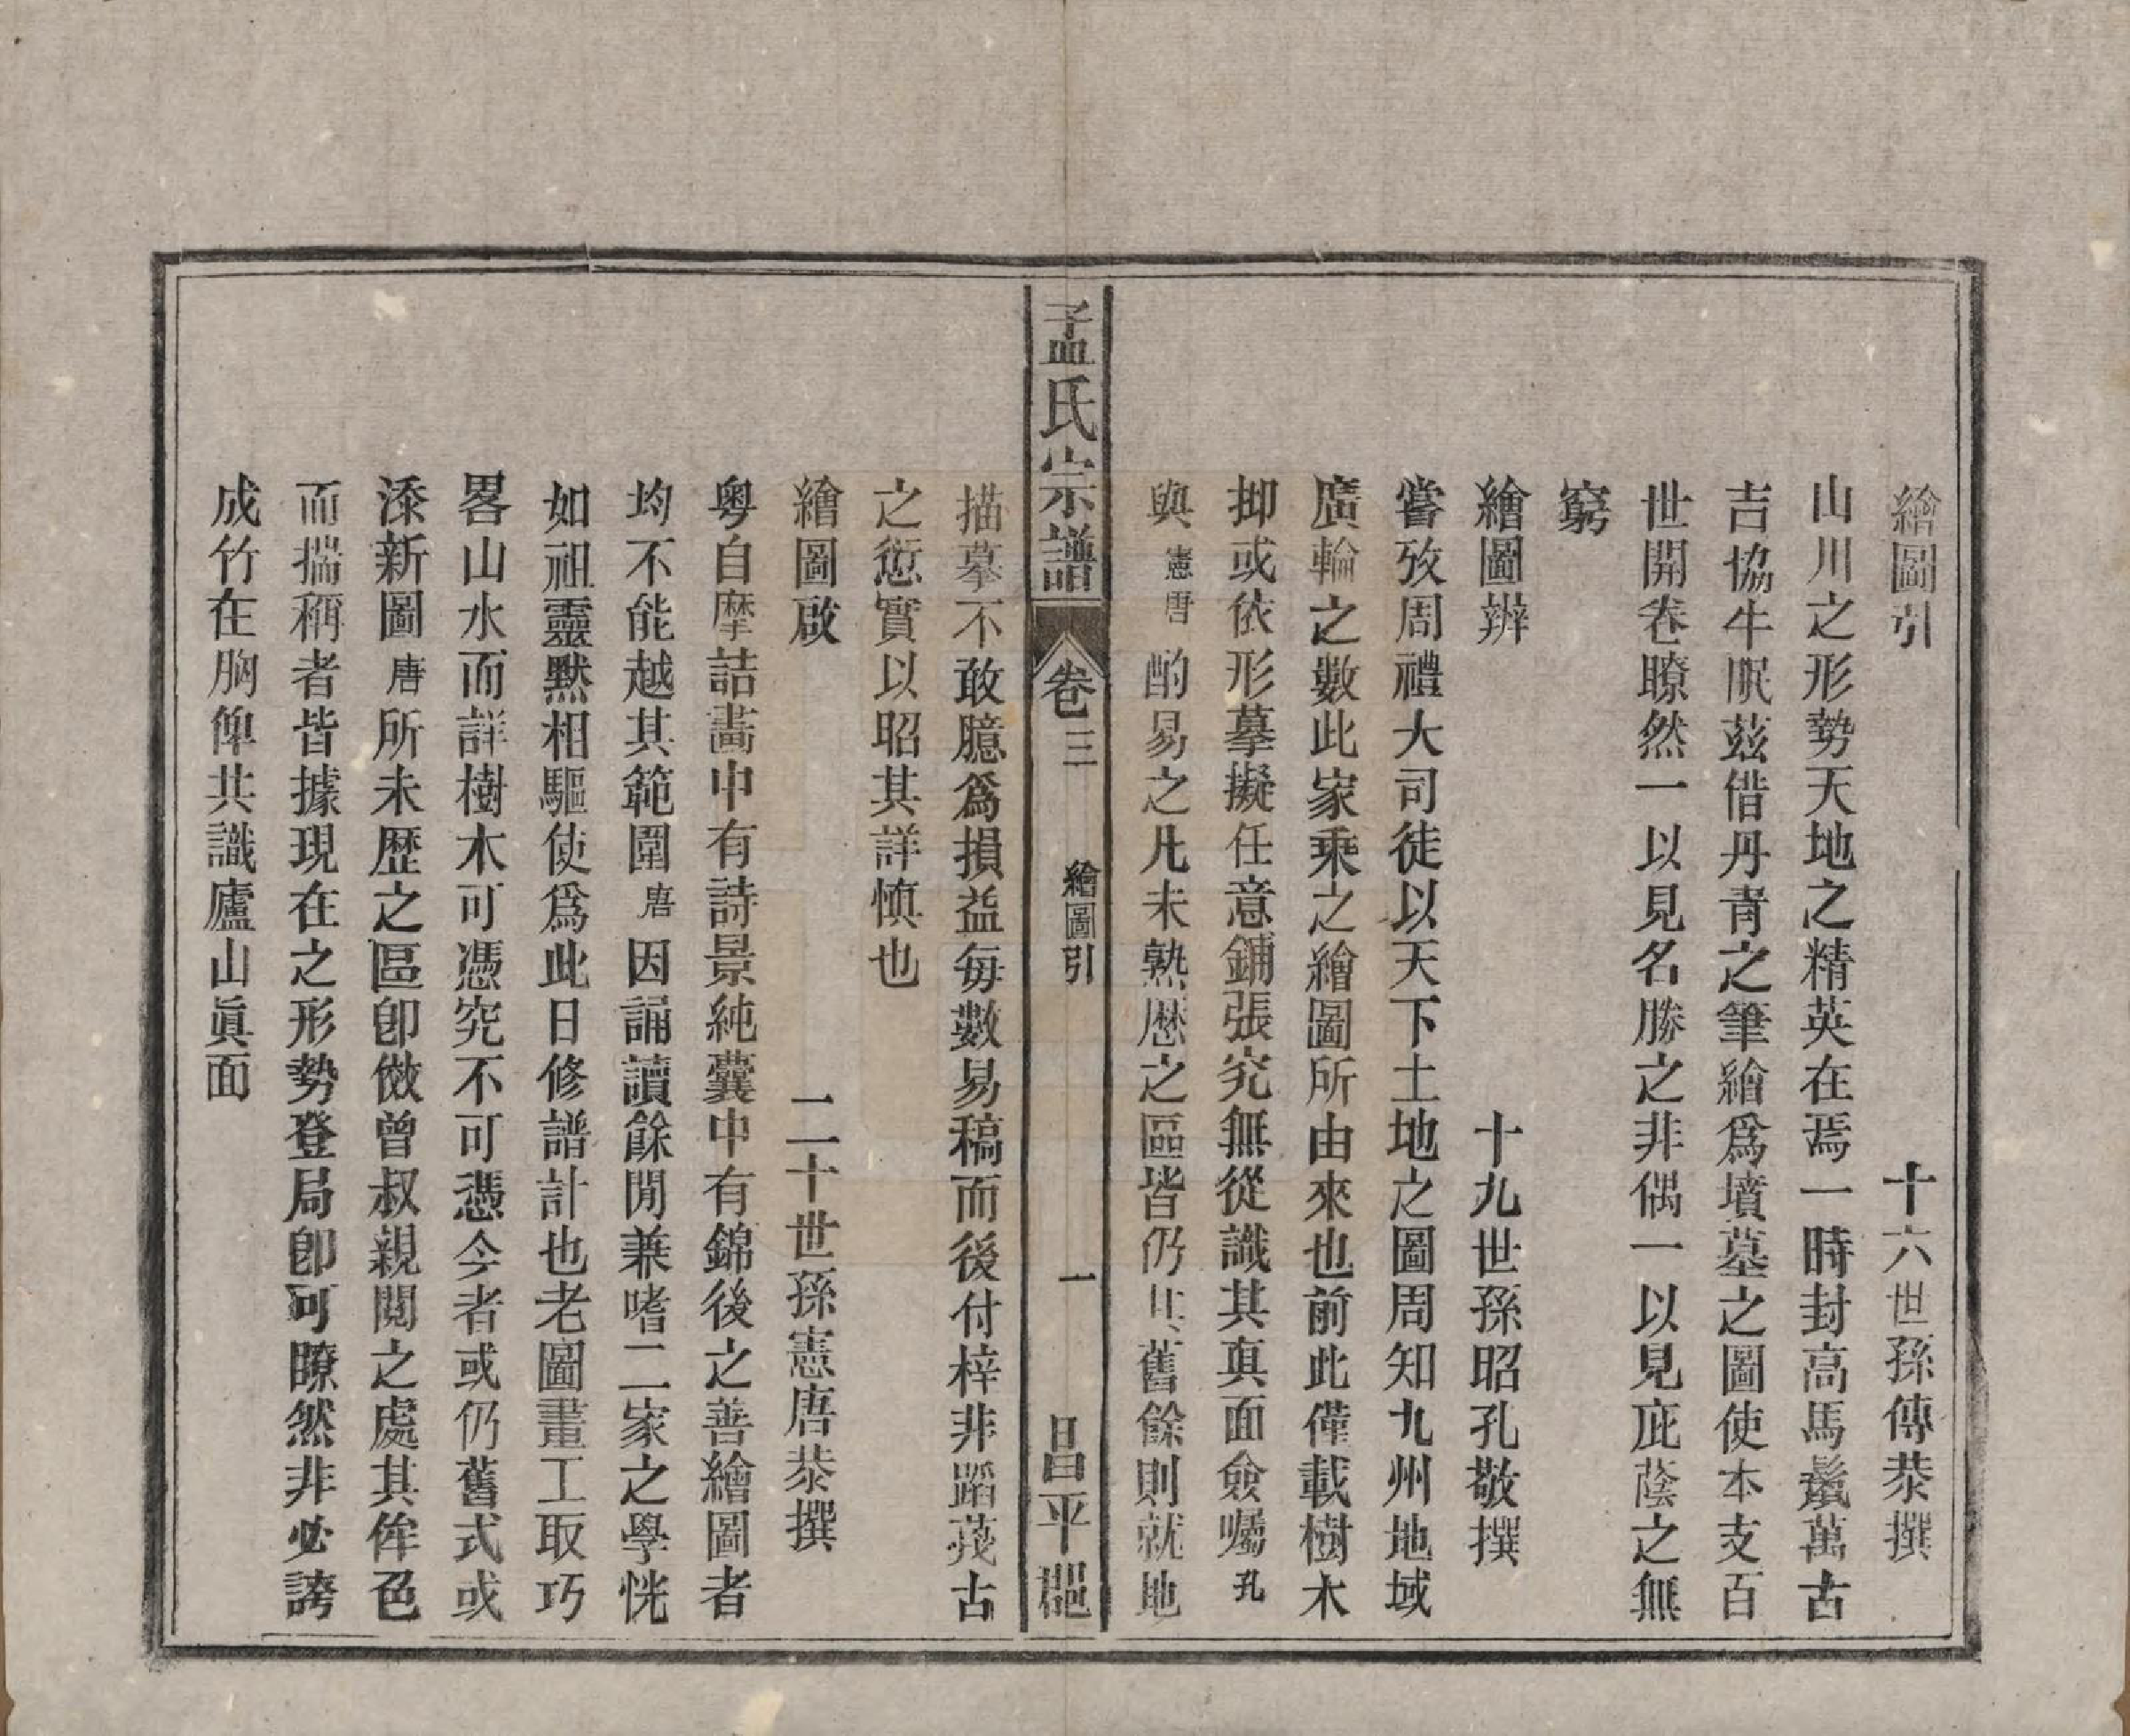 繪圖引　十六世孫傳恭撰
山川之形勢天地之精英在焉一時封高馬鬣萬古
吉協牛眠茲借丹青之筆繪爲墳墓之圖使本支百
世開卷瞭然一以見名勝之非偶一以見庇蔭之無
窮
繪圖辨　十九世孫昭孔敬撰
嘗攷周禮大司徒以天下土地之圖周知九州地域
廣輪之數此家乗之繪圖所由來也前此僅載樹木
抑或依形摹擬任意鋪張究無從識其真面僉囑孔
與憲唐酌易之凡未熟歴之區皆仍其舊餘則就地
孟氏宗譜　卷三　繪圖引　一　昌平郡
描摹不敢臆爲損益每數易稿而後付梓非蹈蔑古
之愆實以昭其詳慎也
繪圖啟　二十世孫憲唐恭撰
粵自摩詰畵中有詩景純囊中有錦後之善繪圖者
均不能越其範圍唐因誦讀餘閒兼嗜二家之學恍
如祖靈黙相驅使爲此日修譜計也老圖畫工取巧
畧山水而詳樹木可憑究不可憑今者或仍舊式或
添新圖唐所未歴之區卽倣曾叔親閱之處其侔色
而揣稱者皆據現在之形勢登局卽可瞭然非必誇
成竹在胸俾共識廬山眞面